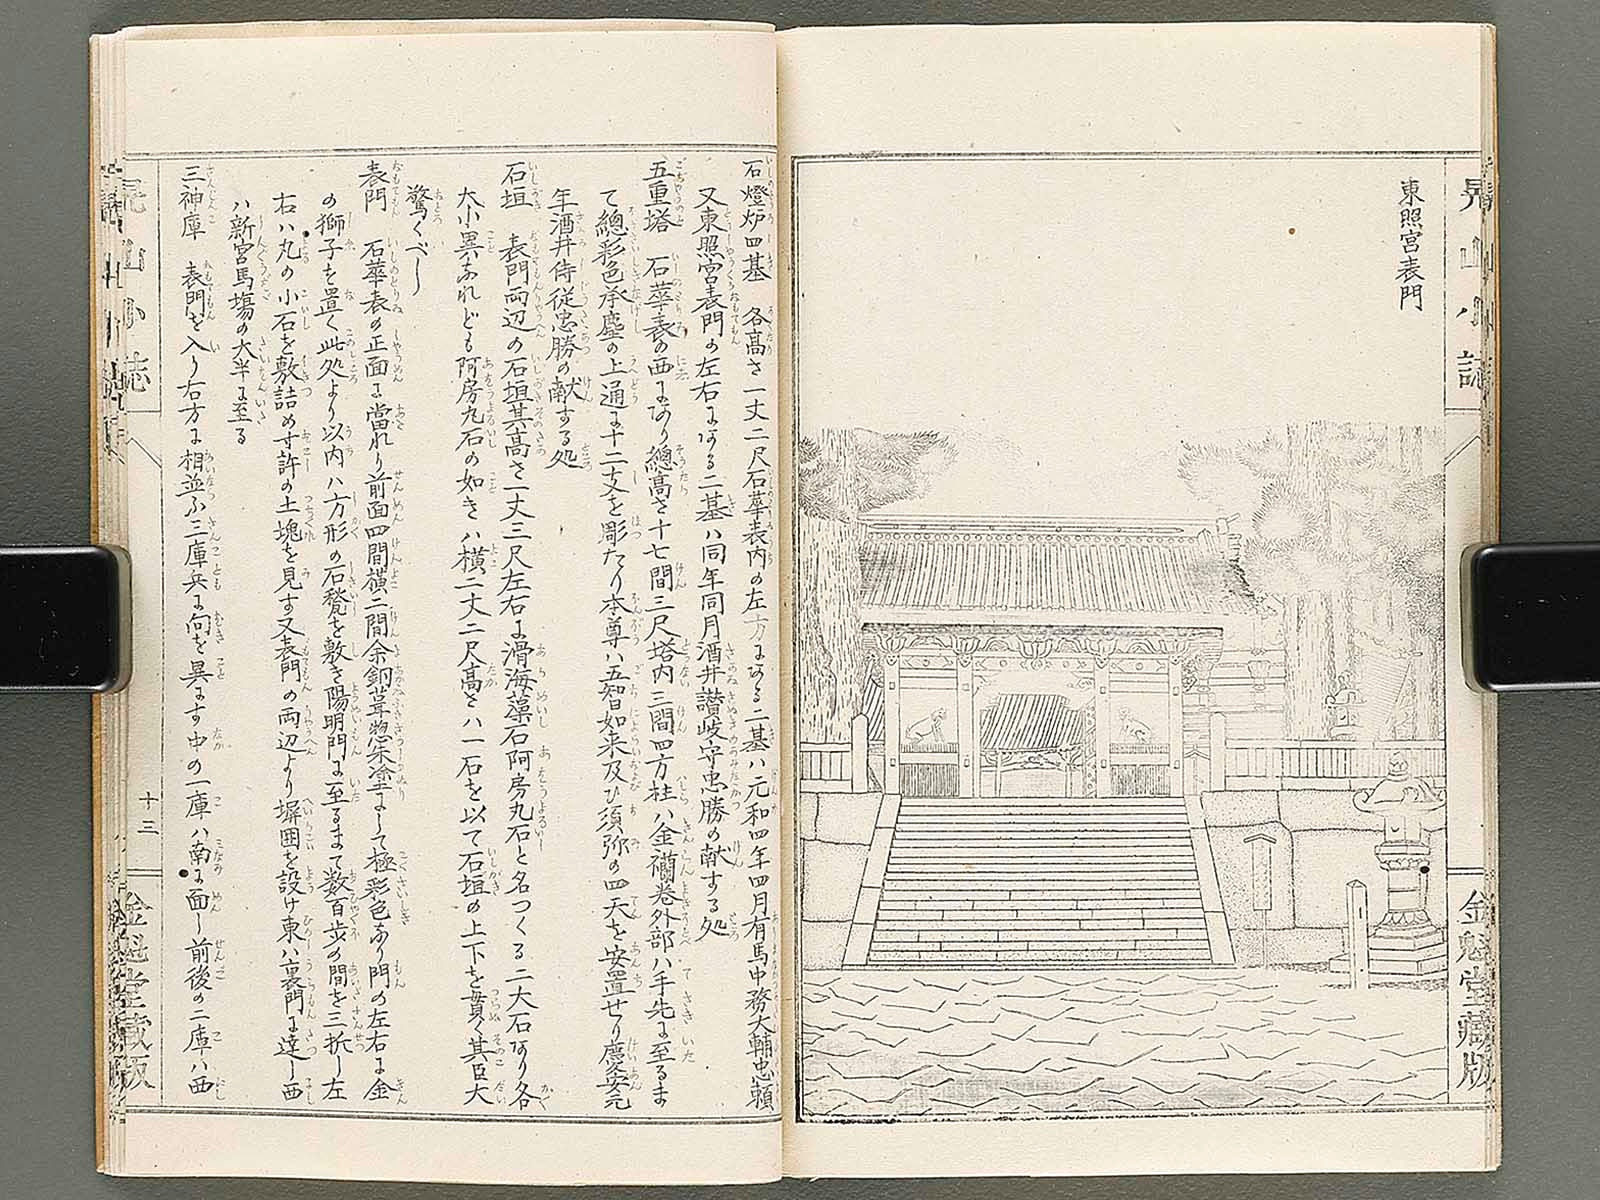 晃山小誌
東照宮表門
金魁堂藏版
石燈炉四基 各高さ一丈二尺石華表内の左方にある二基ハ元和四年四月有馬中務大輔忠頼
又東照宮表門の左右にある二基ハ同年同月酒井讃岐守忠勝の献する処
五重塔 石華表の西にあり總高さ十七間三尺塔内三間四方柱ハ金襴巻外部ハ手先に至るま
て總彩色承塵の上通に十二支を彫たり本尊ハ五智如来及ひ須弥の四天を安置せり慶安元
年酒井侍従忠勝の献する処
石垣 表門両辺の石垣其高さ一丈三尺左右に滑海藻石阿房丸石と名つくる二大石あり各
大小異なれども阿房丸石の如きハ横二丈二尺高さハ一石を以て石垣の上下を貫く其巨大
驚くべし
表門 石華表の正面に當れり前面四間横二間余銅葺惣朱塗にして極彩色なり門の左右に金
の獅子を置く此処より以内ハ方形の石甃を敷き陽明門に至るまて数百歩の間を三折し左
右ハ丸の小石を敷詰め寸許の土塊を見す又表門の両辺より塀囲を設け東ハ裏門に達し西
ハ新宮馬塲の大半に至る
三神庫 表門を入り右方に相並ふ三庫共に向を異にす中の一庫ハ南に面し前後の二庫ハ西
十三
金魁堂藏版